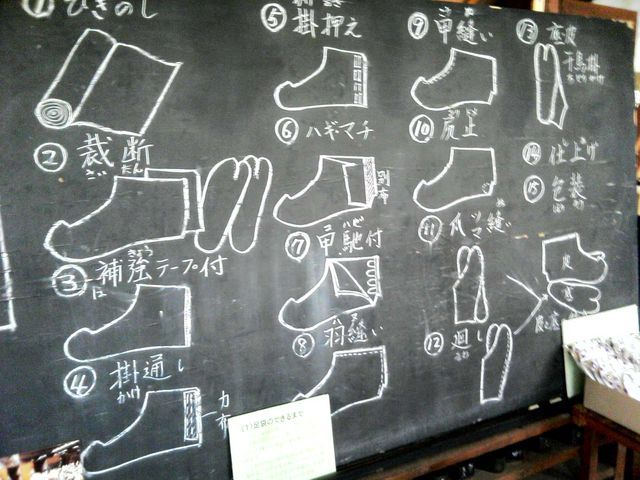 ① ひきのし
② 裁断
だん
③ 補強テープ付
ほ きょう
④ 掛通し
かけ
力布
⑤ 掛押え
⑥ ハギマチ
別布
⑦ 甲馳付
ハゼ
⑧ 羽縫い
⑨ 甲縫い
⑩ 尻止
⑪ 爪縫い
ツマ
⑫ 廻し
⑬ 底皮
千鳥掛
⑭ 仕上げ
⑮ 包装
皮
底
(1)足袋のできるまで